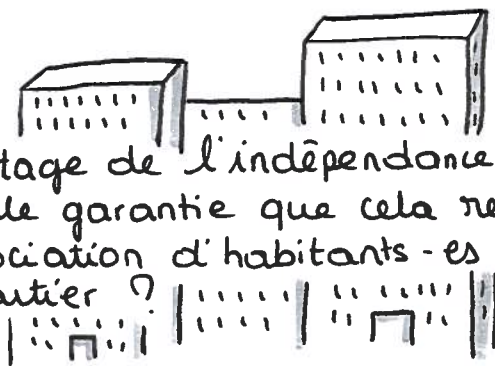 tage de l'indépendance
le garantie que cela re
ociation d'habitants-es
artier ?